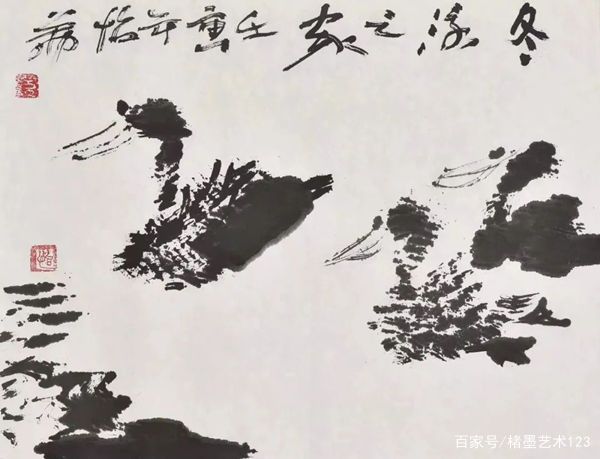 冬泳之家壬寅年怡荔
百家号/楮墨艺术123